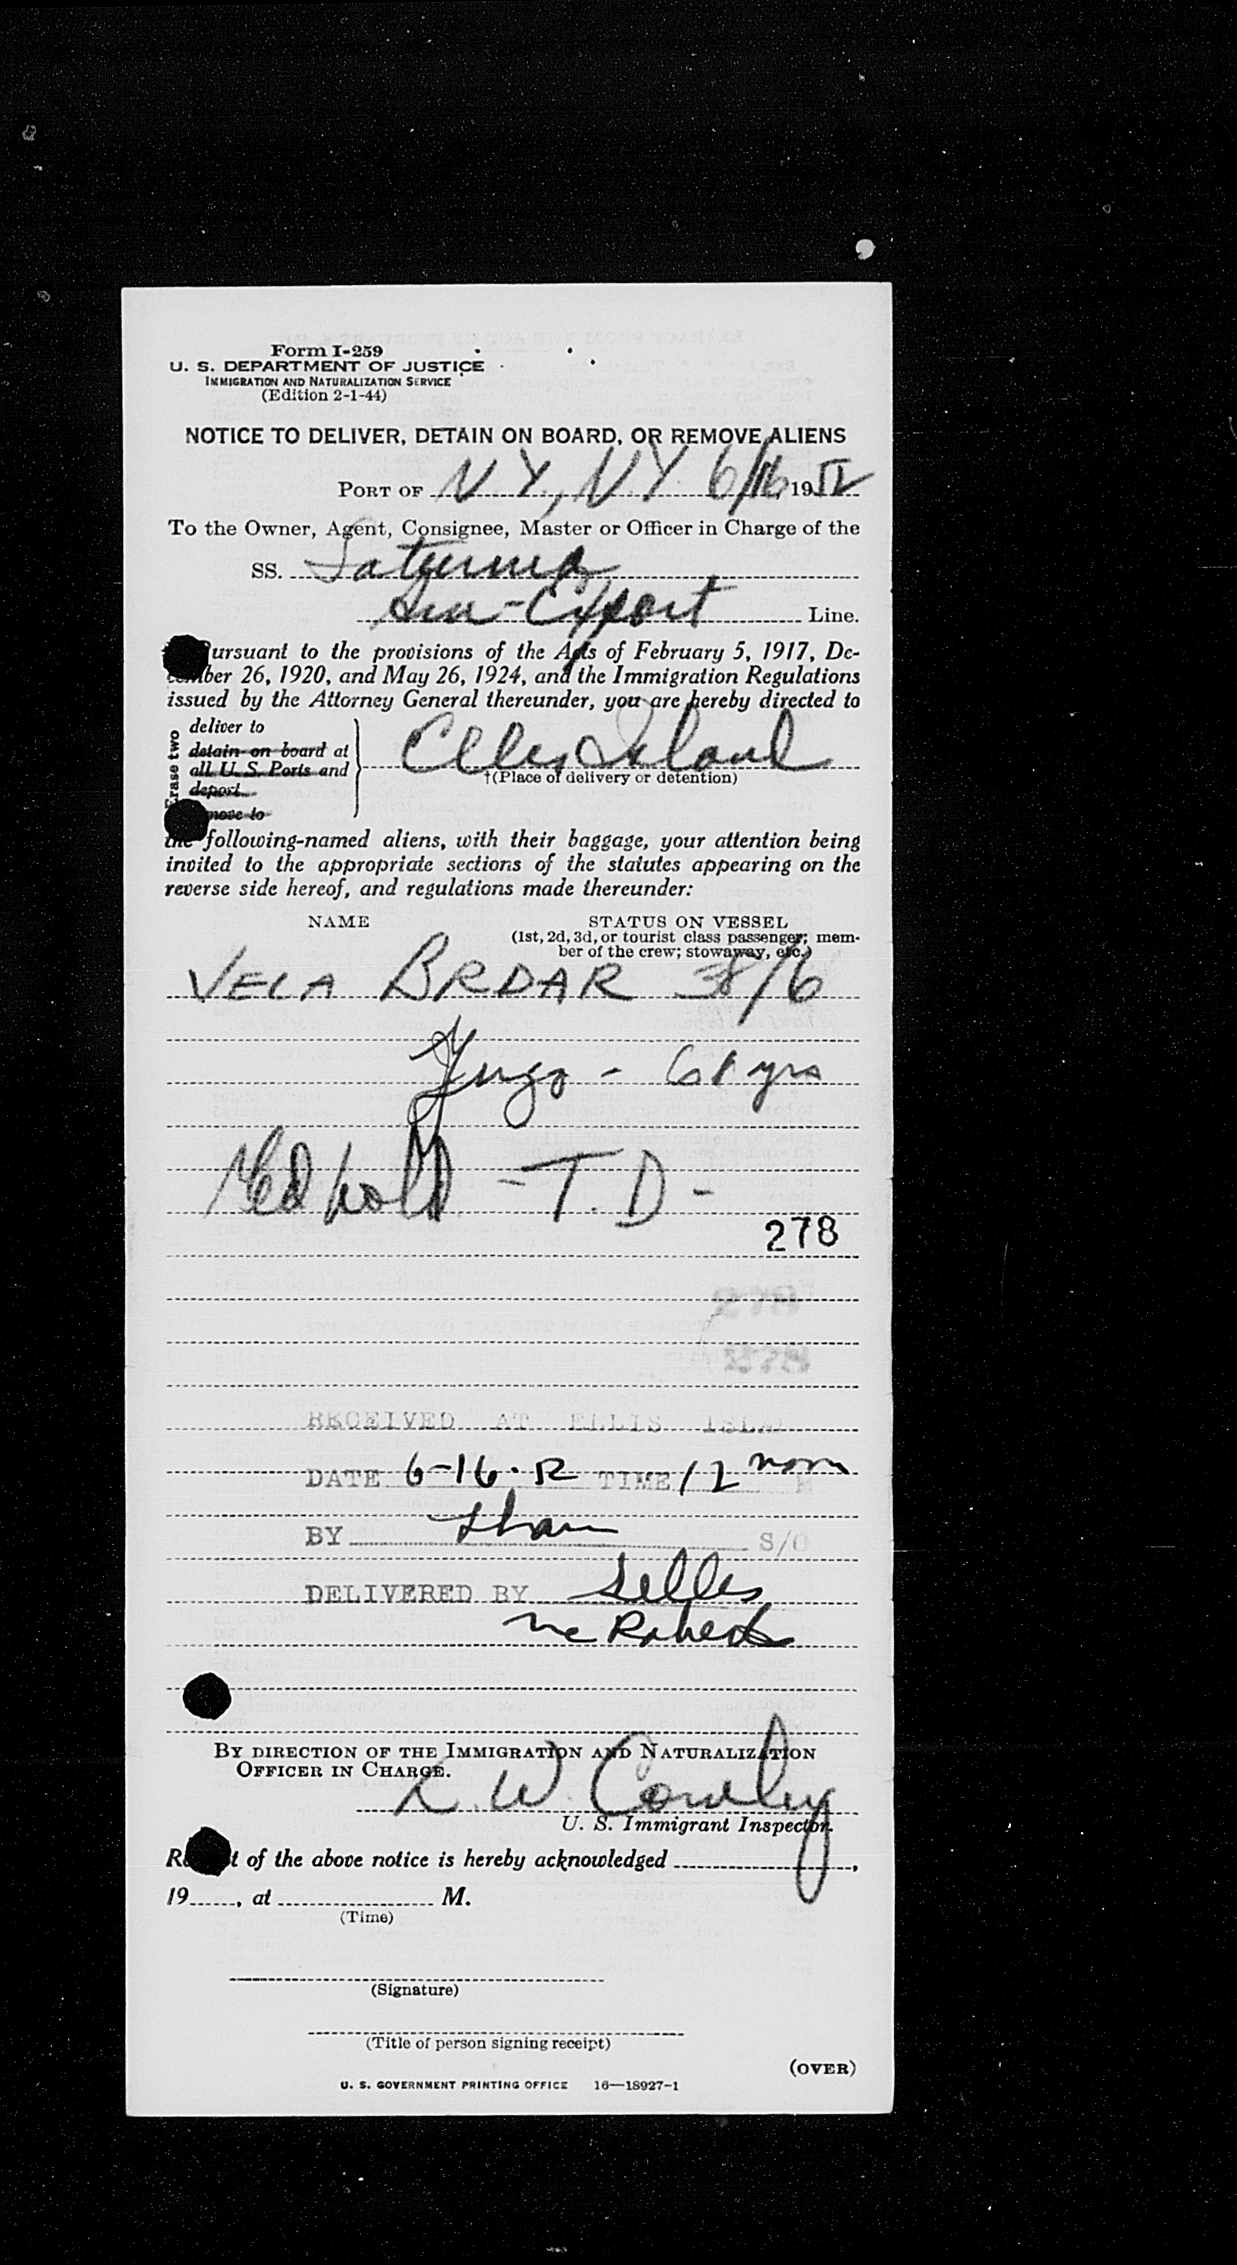 Form I-259
U. S. DEPARTMENT OF JUSTICE
IMMIGRATION AND NATURALIZATION SERVICE
(Edition 2-1-44)
NOTICE TO DELIVER, DETAIN ON BOARD, OR REMOVE ALIENS
PORT OF N Y, N Y 6/16, 1952
To the Owner, Agent, Consignee, Master or Officer in Charge of the
SS. Saturnia
Am-Export Line.
Pursuant to the provisions of the Acts of February 5, 1917, De-
cember 26, 1920, and May 26, 1924, and the Immigration Regulations
issued by the Attorney General thereunder, you are hereby directed to
Erase two
deliver to
detain on board at
all U. S. Ports and
deport
remove to
Ellis Island
†(Place of delivery or detention)
the following-named aliens, with their baggage, your attention being
invited to the appropriate sections of the statutes appearing on the
reverse side hereof, and regulations made thereunder:
NAME STATUS ON VESSEL
(1st, 2d, 3d, or tourist class passenger; mem-
ber of the crew; stowaway, etc.)
VELA BRDAR 38/6
Yugo - 61 yrs
Med hold - T. D -
278
278
278
RECEIVED AT ELLIS ISLA
DATE 6-16-52 TIME 12 noon
BY S/O
DELIVERED BY
BY DIRECTION OF THE IMMIGRATION AND NATURALIZATION
OFFICER IN CHARGE.
L. W. Cowley
U. S. Immigrant Inspector.
Receipt of the above notice is hereby acknowledged ,
19 , at M.
(Time)
(Signature)
(Title of person signing receipt)
(OVER)
U. S. GOVERNMENT PRINTING OFFICE 16—18927-1